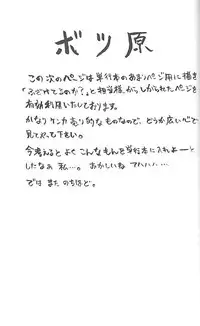 ボツ原
この次のページは単行本のあまりページ用に描き
「ふざけてるのか?」と担当様からしかられたページを
有効利用いたしております。
かなりケンカ売り的なものなので、どうか広い心で
見てやって下さい。
今考えると よくこんなもんを単行本に入れよーと
したなぁ 私…。おかしいね アハハハ…
では また のちほど。